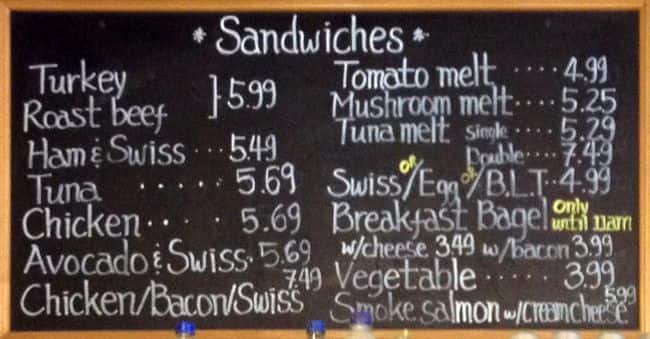 * Sandwiches *
Turkey
Roast beef } 5.99
Ham & Swiss ... 5.49
Tuna ..... 5.69
Chicken .... 5.69
Avocado & Swiss. 5.69
Chicken/Bacon/Swiss 7.49
Tomato melt .... 4.99
Mushroom melt .... 5.25
Tuna melt single .... 5.29
Double .... 7.49
Swiss/or Egg or/B.L.T.. 4.99
Breakfast Bagel only until 11am
w/cheese 3.49 w/bacon 3.99
Vegetable ..... 3.99
Smoke salmon w/creamcheese 5.99